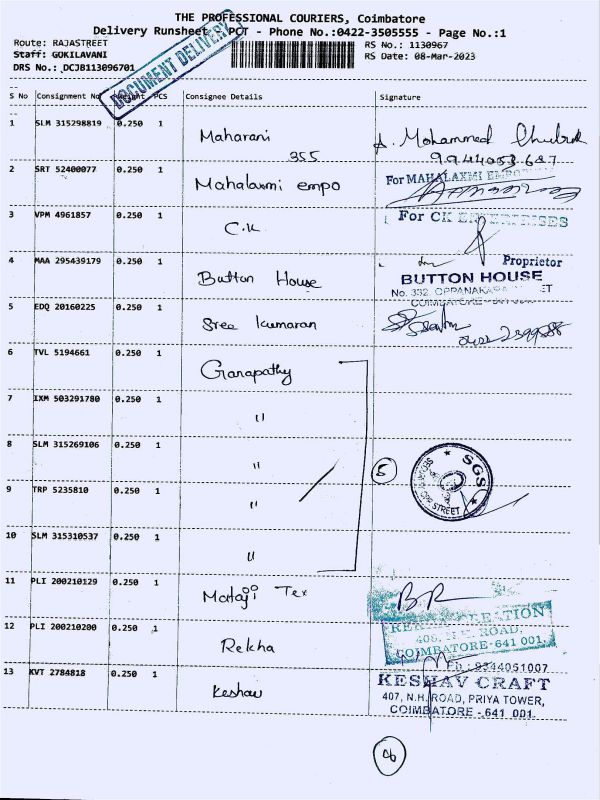 THE PROFESSIONAL COURIERS, Coimbatore
Delivery Runsheet POT - Phone No.:0422-3505555 - Page No.:1
Route: RAJASTREET RS No.: 1130967
Staff: GOKILAVANI RS Date: 08-Mar-2023
DRS No.: DCJB113096701
DOCUMENT DELIVERY
S No Consignment No Weight PCS Consignee Details Signature
1 SLM 315298819 0.250 1 Maharani A. Mohammed
355 9944053687
2 SRT 52400077 0.250 1 Mahalaxmi empo For MAHALAXMI
3 VPM 4961857 0.250 1 C.K For CK ENTERPRISES
Proprietor
4 MAA 295439179 0.250 1 Button House BUTTON HOUSE
No. 332, OPPANAKARA STREET
COIMBATORE
5 EDQ 20160225 0.250 1 Sree Kumaran
6 TVL 5194661 0.250 1 Ganapathy
7 IXM 503291780 0.250 1 "
8 SLM 315269106 0.250 1 "
5 SGS
STREET
9 TRP 5235810 0.250 1 "
10 SLM 315310537 0.250 1 "
11 PLI 200210129 0.250 1 Mataji Tex BR
12 PLI 200210200 0.250 1 Rekha CREATION
406, N.H. ROAD,
COIMBATORE-641 001.
13 KVT 2784818 0.250 1 Keshav KESHAV CRAFT
407, N.H. ROAD, PRIYA TOWER,
COIMBATORE - 641 001.